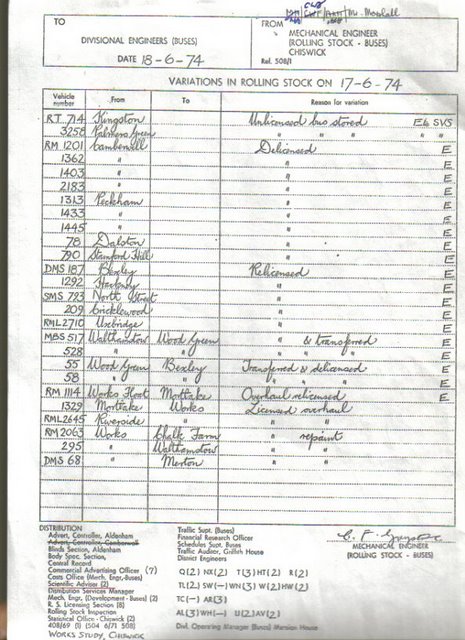 Mr. Marshall
TO
DIVISIONAL ENGINEERS (BUSES)
DATE 18-6-74
FROM
MECHANICAL ENGINEER
(ROLLING STOCK - BUSES)
CHISWICK
Ref. 508/1
VARIATIONS IN ROLLING STOCK ON 17-6-74
Vehicle number From To Reason for variation
RT 714 Kingston Unlicensed bus stored Eb SVS
3258 Palmers Green " " " " "
RM 1201 Camberwell Delicensed E
1362 " " E
1403 " " E
2183 " " E
1313 Peckham " E
1433 " " E
1445 " " E
78 Dalston " E
790 Stamford Hill " E
DMS 187 Bexley Relicensed E
1292 Hackney " E
SMS 793 North Street " E
209 Cricklewood " E
RML 2710 Uxbridge " E
MBS 517 Walthamstow Wood Green " & transferred E
528 " " " " " E
55 Wood Green Bexley Transferred & delicensed E
58 " " " " " E
RM 1114 Works Float Mortlake Overhaul relicensed E
1329 Mortlake Works Licensed overhaul
RML 2645 Riverside " " "
RM 2063 Works Chalk Farm " repaint
295 " Walthamstow " "
DMS 68 " Merton " "
DISTRIBUTION
Advert, Controller, Aldenham
Advert, Controller, Camberwell
Blinds Section, Aldenham
Body Spec. Section,
Central Record
Commercial Advertising Officer (7)
Costs Office (Mech. Engr.-Buses)
Scientific Adviser (2)
Distribution Services Manager
Mech. Engr, (Development - Buses) (2)
R. S. Licensing Section (8)
Rolling Stock Inspection
Statistical Office - Chiswick (2)
408/69 (1) (504 6/71 508)
WORKS STUDY, CHISWICK
Traffic Supt. (Buses)
Financial Research Officer
Schedules Supt. Buses
Traffic Auditor, Griffith House
District Engineers
Q(2) NX(2) T(3) HT(2) R(2)
TL(2) SW(-) WN(3) W(2) HW(2)
TC(-) AR(3)
AL(3) WH(-) U(2) AV(2)
Divl. Operating Manager (Buses) Mansion House
MECHANICAL ENGINEER
(ROLLING STOCK - BUSES)